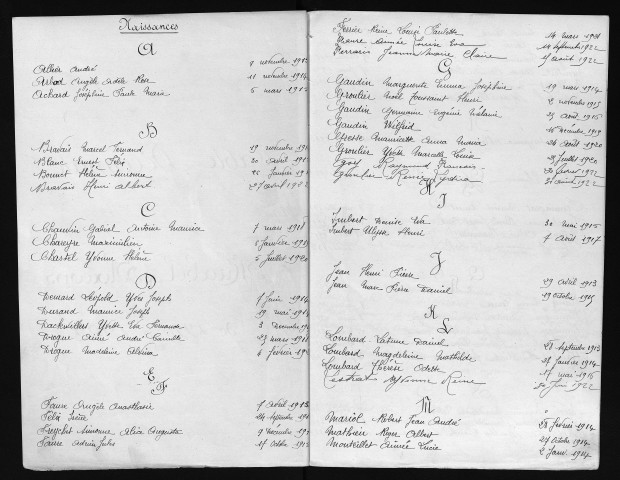 Naissances
A
Allier André novembre 191
Arbod Angèle Odile Rose 11 novembre 1914
Achard Joséphine Paule Marie 5 mars 191
B
Bravais Marcel Fernand 19 novembre 191
Blanc Ernest Félix 20 avril 191
Bonnet Hélène Simonne Janvier 191
Bravais Henri Albert avril 1922
C
Chauvin Gabriel Antoine Maurice 7 mars 1918
Chareyre Maximilien Janvier 191
Chastel Yvonne Hélène 5 Juillet 1920
D
Demard Léopold Yves Joseph 1 Juin 1914
Durand Maurice Joseph 19 mai 191
Yvette Fernande 3 Décembre 19
Drogue Aimé André Camille 27 mars 191
Drogue Madeleine 6 février 19
E F
Faure Angèle Anasthasie 7 avril 1913
Félix Irène 24 Septembre 19
Freychet Simonne Alice Augusta 9 Décembre 19
Faure Adrien Jules 27 Octobre 19
Ferrier Reine Louise Paulette 14 mars 1921
Faure Aimée Louise Eva 14 septembre 1922
Ferraris Jeanne Marie Claire août 1922
G
Gaudin Marguerite Emma Joséphine 19 mars 1914
Groulier Noël Toussaint Henri 2 novembre 1915
Gaudin Germaine Eugénie Mélanie 25 août 1915
Gaudin Wilfrid 16 Décembre 1919
Mauricette Anna Maria 24 août 1920
Groulier Yvette Marcelle Lucia 28 Juillet 1920
Raymond François 1922
Renée 1922
H I
Imbert Denise Eva 30 mai 1915
Imbert Ulysse Henri 7 avril 1917
J
Jean Henri Pierre 29 avril 1913
Jean Marc Pierre Daniel 29 octobre 1915
K L
Lombard Etienne Daniel 28 Septembre 1913
Lombard Magdeleine Mathilde 27 Janvier 1914
Lombard Thérèse Odette 17 mai 1916
Reine Juin 1922
M
Mariol Robert Jean André 28 février 1914
Mathieu Roger Albert 27 Octobre 1914
Monteillet Aimée Lucie 2 Janv. 1914